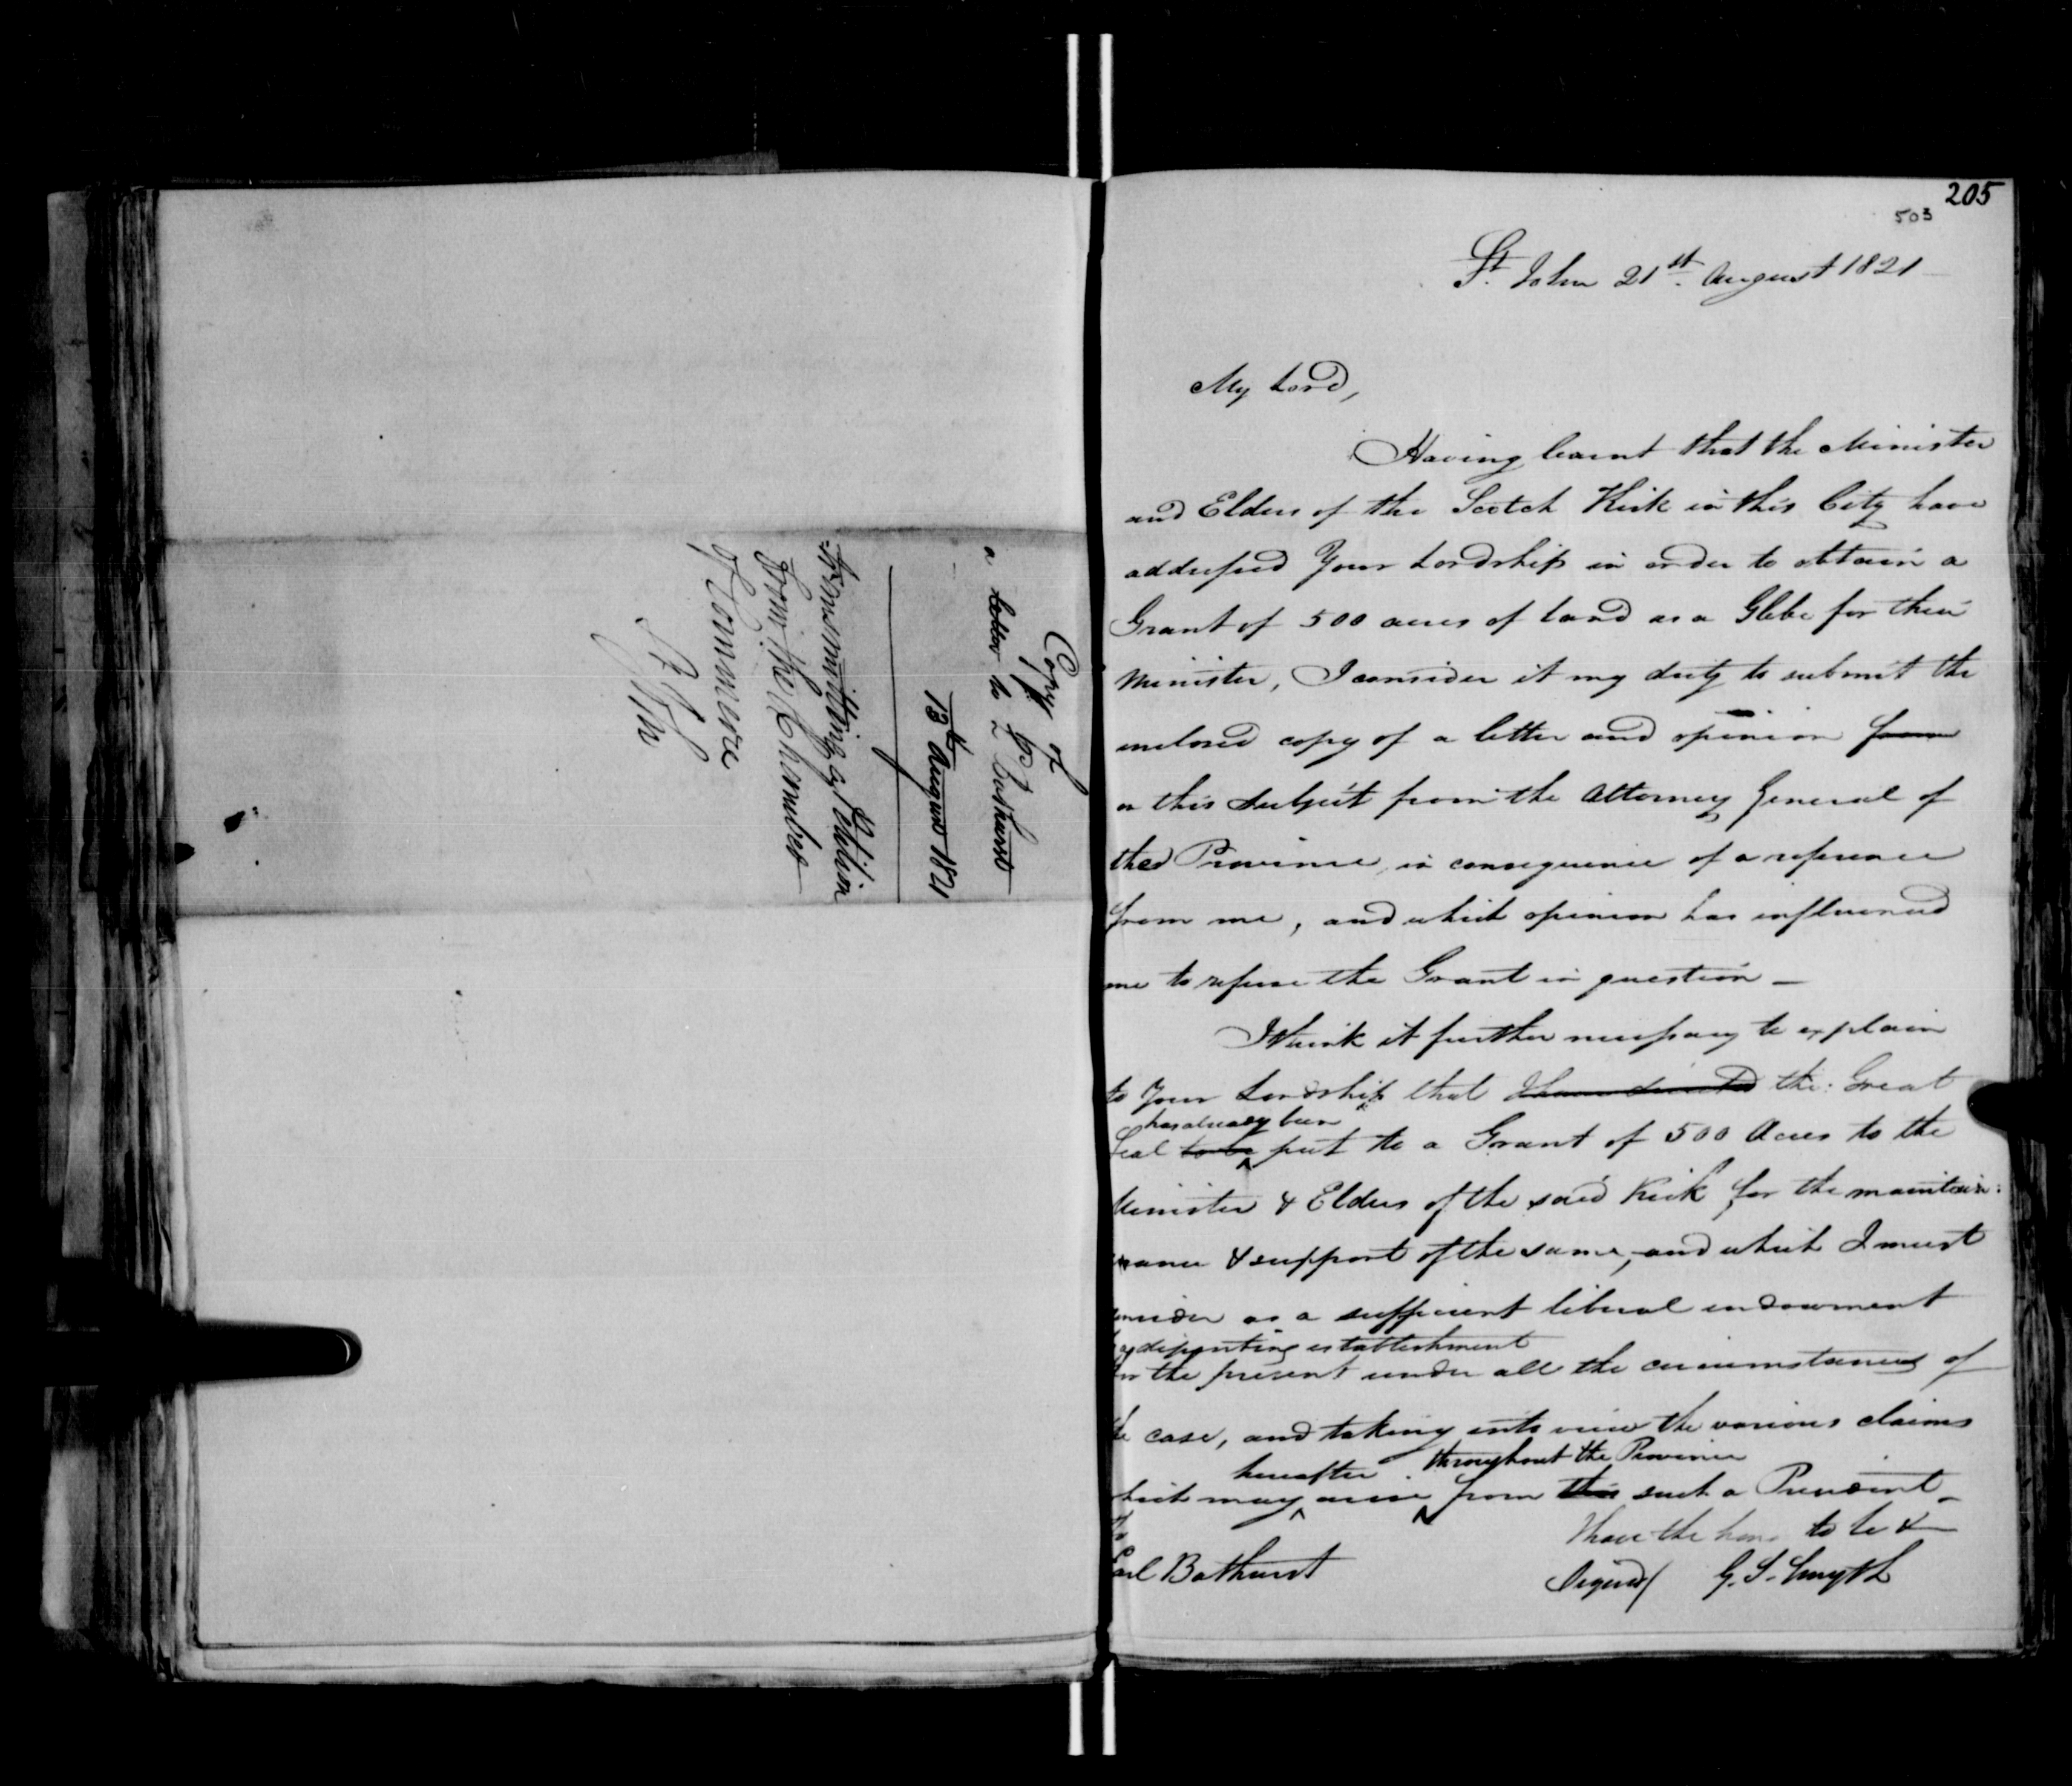 Copy of
a Letter to Ld Bathurst
13th August 1821
Transmitting a Petition
from the Chamber
of Commerce
St Jn
205
503
St. John 21st. August 1821
My Lord,
Having learnt that the Minister
and Elders of the Scotch Kirk in this City have
addressed Your Lordship in order to obtain a
Grant of 500 acres of land as a Glebe for their
Minister, I consider it my duty to submit the
enclosed copy of a letter and opinion from
on this subject from the Attorney General of
the Province, in consequence of a reference
from me, and which opinion has influenced
me to refuse the Grant in question —
I think it further necessary to explain
to Your Lordship that I have directed the Great
has already been
Seal to be put to a Grant of 500 Acres to the
Minister & Elders of the said Kirk for the maintain:
nance & support of the same, and which I must
consider as a sufficient liberal endowment
dissenting establishment
for the present under all the circumstances of
the case, and taking into view the various claims
hereafter throughout the Province
which may arise from this such a Precedent —
I have the hon to be &
Earl Bathurst
Signed/ G. S. Smyth